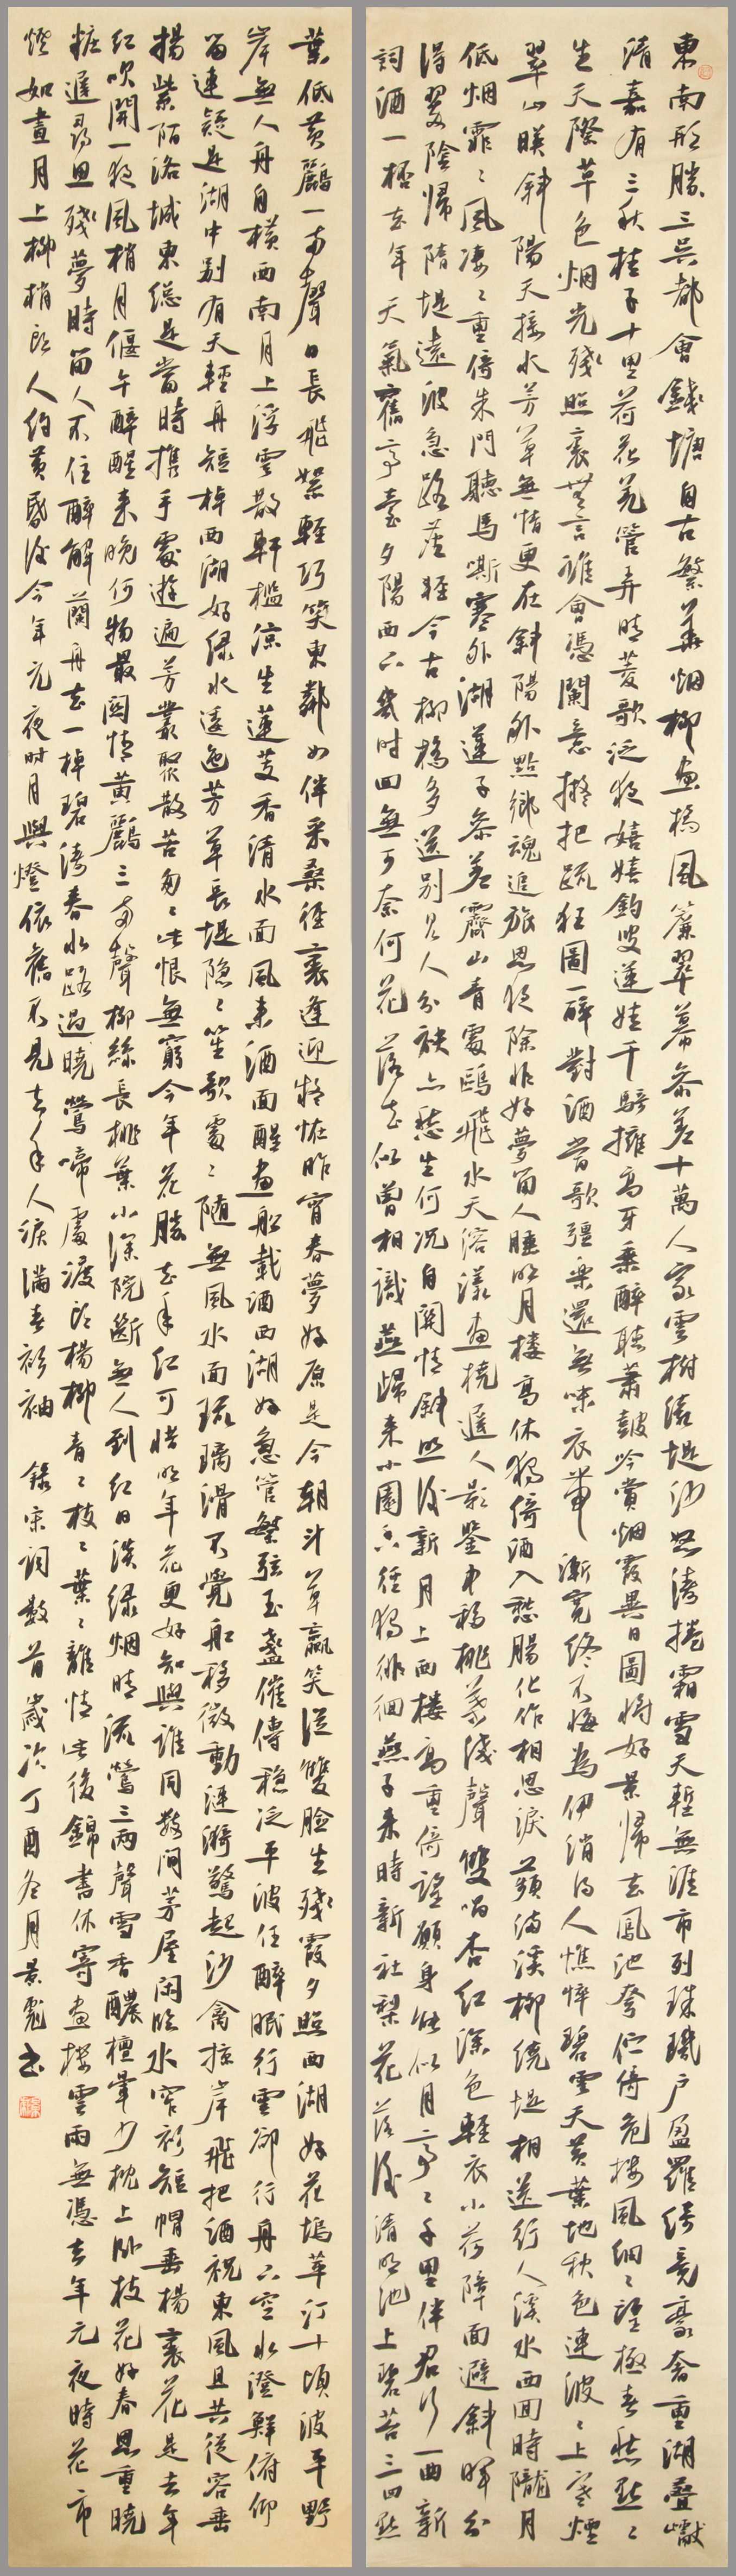 東南形勝三吳都會錢塘自古繁華烟柳畫橋風簾翠幕參差十萬人家雲樹繞堤沙怒濤捲霜雪天塹無涯市列珠璣户盈羅綺競豪奢重湖疊巘
清嘉有三秋桂子十里荷花羌管弄晴菱歌泛夜嬉嬉釣叟蓮娃千騎擁高牙乘醉聽簫鼓吟賞烟霞異日圖將好景歸去鳳池夸佇倚危樓風細〻望極春愁黯〻
生天際草色烟光殘照裏無言誰會憑闌意擬把疏狂圖一醉對酒當歌彊樂還無味衣帶漸寬終不悔為伊消得人憔悴碧雲天黄葉地秋色連波〻上寒煙
翠山映斜陽天接水芳草無情更在斜陽外黯鄉魂追旅思夜除非好夢留人睡明月樓高休獨倚酒入愁腸化作相思淚蘋滿溪柳繞堤相送行人溪水西回時隴月
低烟霏〻風凄〻重倚朱門聽馬嘶寒外湖蓮子參差霽山青處鷗飛水天溶漾畫橈遲人影鑒中移桃葉淺聲雙唱杏紅深色輕衣小荷障面避斜暉分
得翠陰歸隋堤遠波急路塵輕今古柳橋多送別見人分袂亦愁生何況自關情斜照後新月上西樓高重倚望願身能似月亭〻千里伴君行一曲新
詞酒一杯去年天氣舊亭臺夕陽西下幾時回無可奈何花落去似曾相識燕歸來小園香徑獨徘徊燕子來時新社梨花落後清明池上碧苔三四點
葉低黄鸝一兩聲日長飛絮輕巧笑東鄰女伴采桑徑裏逢迎疑怪昨宵春夢好原是今朝斗草贏笑從雙臉生殘霞夕照西湖好花塢蘋汀十頃波平野
岸無人舟自橫西南月上浮雲散軒檻涼生蓮芰香清水面風來酒面醒畫船載酒西湖好急管繁弦玉盞催傳穩泛平波任醉眠行雲卻行舟下空水澄鮮俯仰
留連疑是湖中別有天輕舟短棹西湖好綠水逶迤芳草長堤隱〻笙歌處〻隨無風水面琉璃滑不覺船移微動漣漪驚起沙禽掠岸飛把酒祝東風且共從容垂
楊紫陌洛城東總是當時攜手處遊遍芳叢聚散苦匆〻此恨無窮今年花勝去年紅可惜明年花更好知與誰同數間茅屋閑臨水窄衫短帽垂楊裏花是去年
紅吹開一夜風梢月偃午醉醒來晚何物最關情黄鸝三兩聲柳絲長桃葉小深院斷無人到紅日淡綠烟晴流鶯三兩聲雪香醲檀暈少枕上卧枝花好春思重曉
粧遲尋思殘夢時留人不住醉解蘭舟去一棹碧濤春水路過曉鶯啼處渡頭楊柳青〻枝〻葉〻離情此後錦書休寄畫樓雲雨無憑去年元夜時花市
燈如晝月上柳梢頭人約黄昏後今年元夜時月與燈依舊不見去年人淚滿春衫袖 錄宋詞數首歲次丁酉冬月景彪書